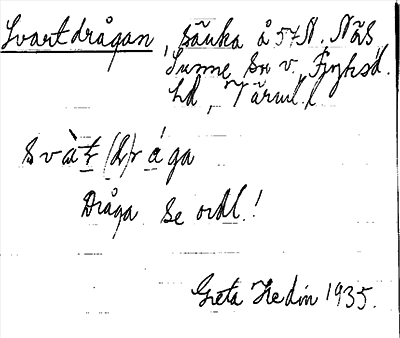 Svartdrågan, sänka å 57 N. Näs,
Sunne sn v. Fryksd.
hd, Värml. l.
svàt̲(d̲)rága
Dråga se ordl.!
Greta Hedin 1935.